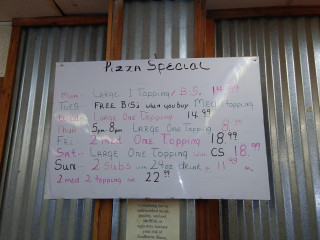 Pizza Special
Mon- Large 1 Topping/ B.S. 14.99
Tues- Free B.S.s when you buy Med 1 topping
Large One Topping 14.99
Thur 5pm-8pm Large One Topping 8.99
Fri 2 med One Topping 18.99
Sat- Large One Topping CS 18.99
Sun- 2 Subs w/ 24oz drink 11.99
2 med 2 topping for 22.99